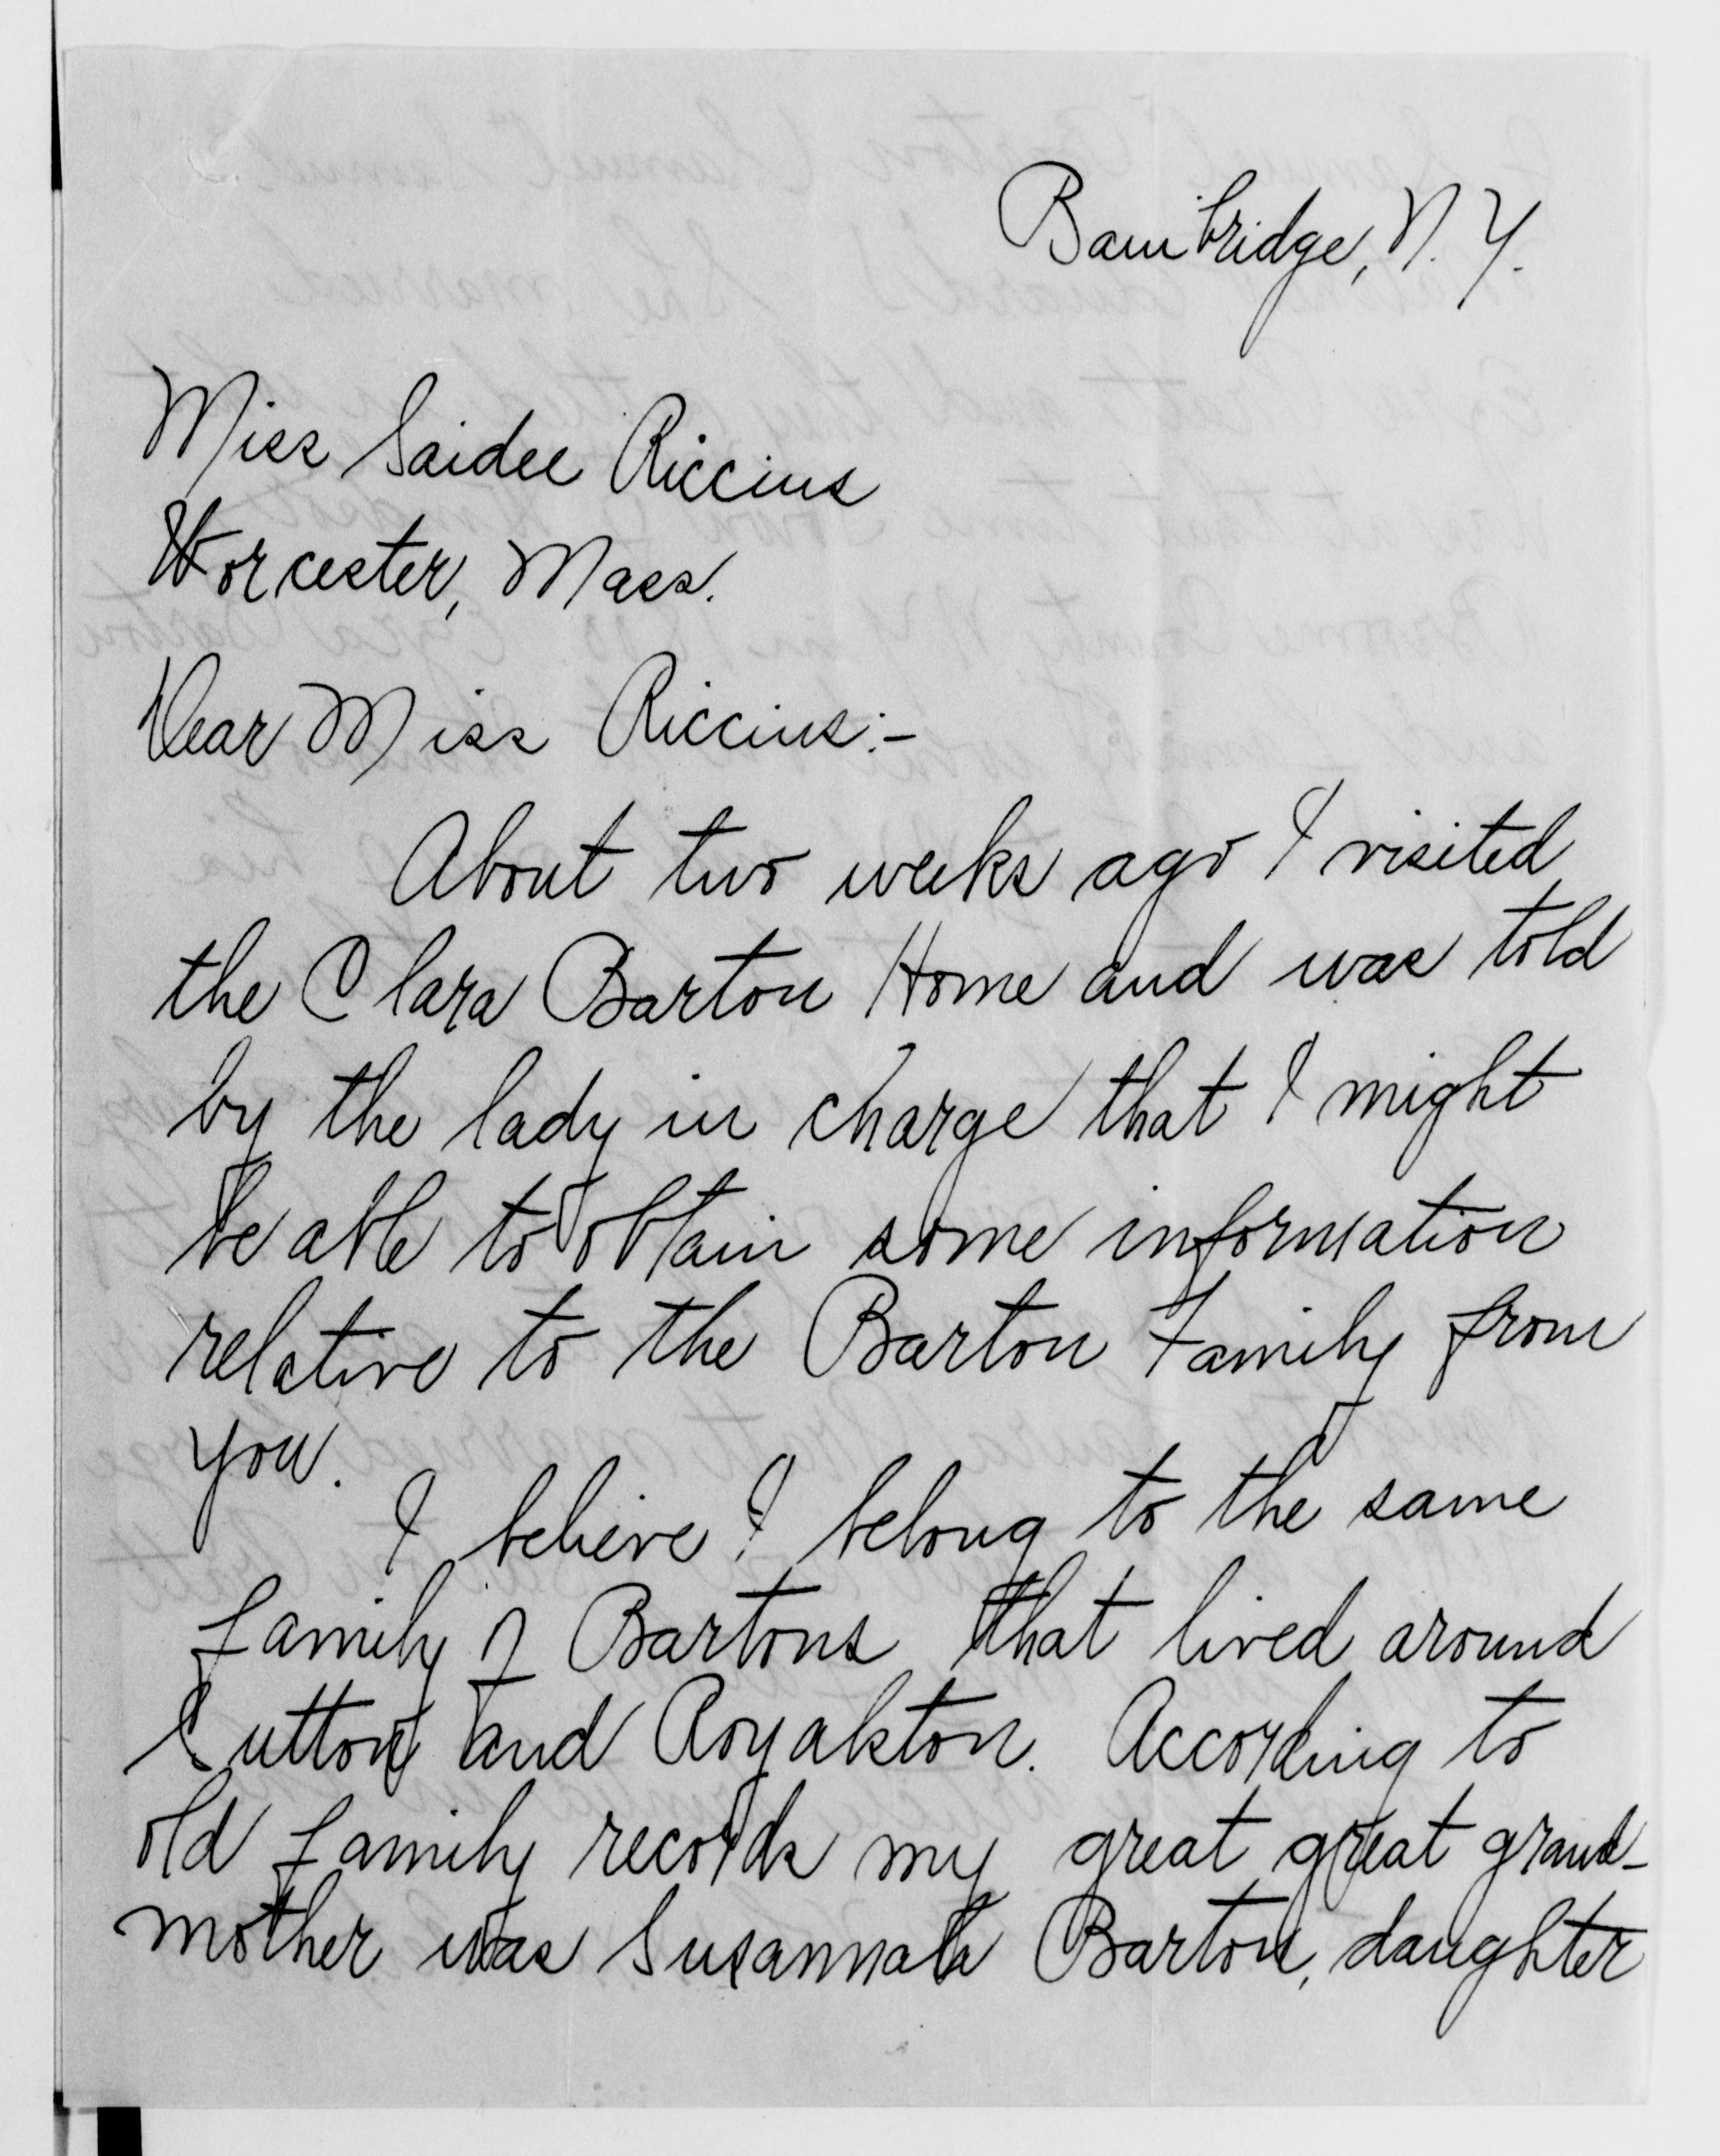 Bainbridge, N. Y.
Miss Saidee Riccius
Worcester, Mass.
Dear Miss Riccius:-
About two weeks ago I visited
the Clara Barton Home and was told
by the lady in charge that I might
be able to obtain some information
relative to the Barton Family from
you.
I believe I belong to the same
family of Bartons that lived around
Sutton and Royalston. According to
old family records my great great grand-
mother was Susannah Barton, daughter